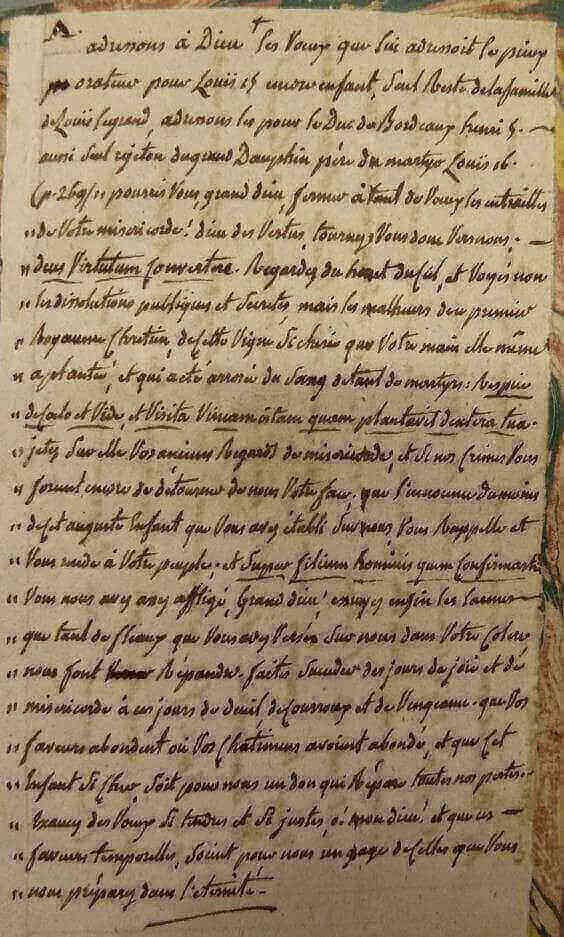 A.
adressons à Dieu + les Voeux que lui adressoit le pieux
orateur pour Louis 15 encore enfant, Seul Reste de la famille
de Louis le grand, adressons les pour le Duc de Bordeaux henri 5. —
aussi Seul rejeton du grand Dauphin père du martyr Louis 16.
(p. 269) " pourriés Vous grand dieu, fermer à tant de Voeux les entrailles
" de Votre misericorde! dieu des Vertus, tournez Vous donc Vers nous. —
" deus Virtutum Convertere. Regardez du haut du Ciel, et Voyez non
" les dissolutions publiques et Secretes, mais les malheurs de ce premier
" Royaume Chretien, de Cette Vigne Si cherie que Votre main Elle même
" a plantée, et qui a été arrosée du Sang de tant de martyrs: Respice
" de Caelo et Vide, et Visita Vineam istam quam plantavit dextera tua.
" jetez Sur elle Vos anciens Regards de misericorde, et Si nos Crimes Vous
" forcent encore de détourner de nous Votre face, que l'innocence du moins
" de Cet auguste Enfant que Vous avez établi Sur nous, Vous Rappelle et
" Vous rende à Votre peuple. et Super filium hominis quem Confirmasti
" Vous nous avez assez affligé, Grand dieu! essuyez enfin les larmes —
" que tant de fleaux que Vous avez Versés Sur nous dans Votre Colere
" nous font Répandre. faites Succeder des jours de joie et de
" misericorde à ces jours de deuil de Courroux et de Vengeance. que Vos
" faveurs abondent où Vos Chatimens avoient abondé, et que Cet
" Enfant Si Cher, Soit pour nous un don qui Répare toutes nos pertes. —
" Exaucez des Voeux Si tendres et Si justes, ô mon dieu! et que ces —
" faveurs temporelles, Soient pour nous un gage de Celles que Vous
" nous préparez dans l'eternité. —